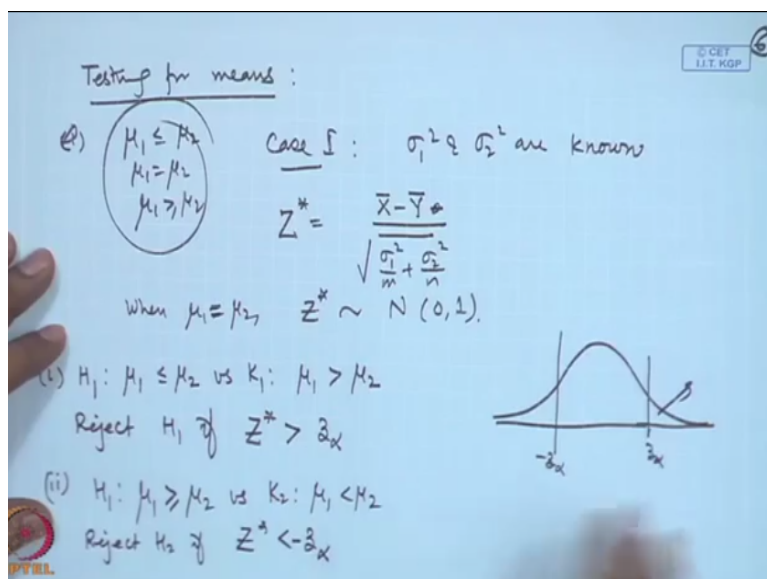 6
© CET
I.I.T. KGP
Testing for means :
μ₁ ≤ μ₂
μ₁ = μ₂
μ₁ ≥ μ₂
Case I : σ₁² & σ₂² are known
Z* = (X̄ - Ȳ) / √(σ₁²/m + σ₂²/n)
When μ₁ = μ₂, Z* ~ N (0, 1).
(i) H₁ : μ₁ ≤ μ₂ vs K₁ : μ₁ > μ₂
Reject H₁ if Z* > z_α
-z_α z_α
(ii) H₁ : μ₁ ≥ μ₂ vs K₂ : μ₁ < μ₂
Reject H₂ if Z* < -z_α
PTEL